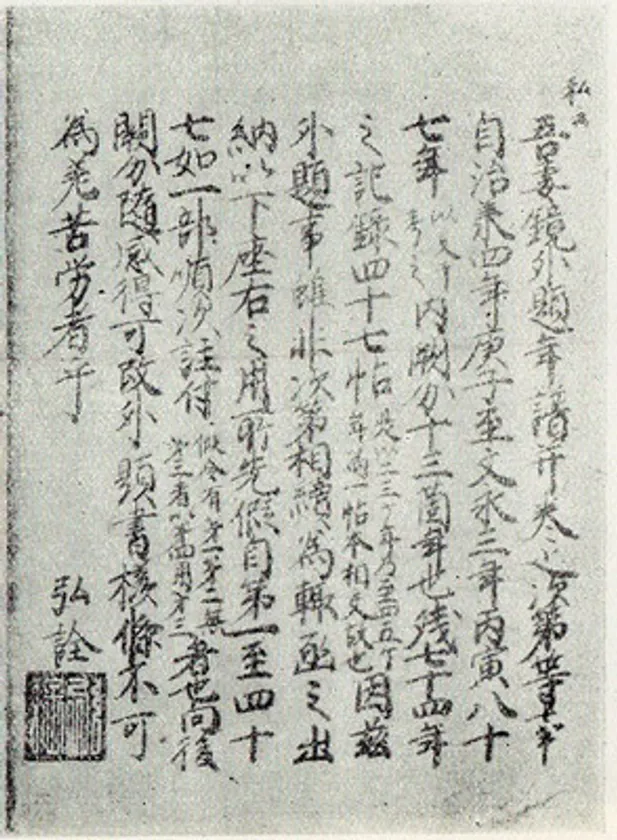 私云
吾妻鏡外題年譜并次第
自治承四年庚子至文永三年丙寅八十
七年内闕分十三箇年也残七十四年
之記録四十七帖是以二三ケ年乃至四五ケ年為一帖本相交故也因茲
外題事雖非次第相続為輙函之出
納以下座右之用所先假自第一至四十
七如一部順次註付假令有第一第二無第三者以第四用第三者也向後
闕分随感得可改外題書條不可
為苦労者乎
弘詮